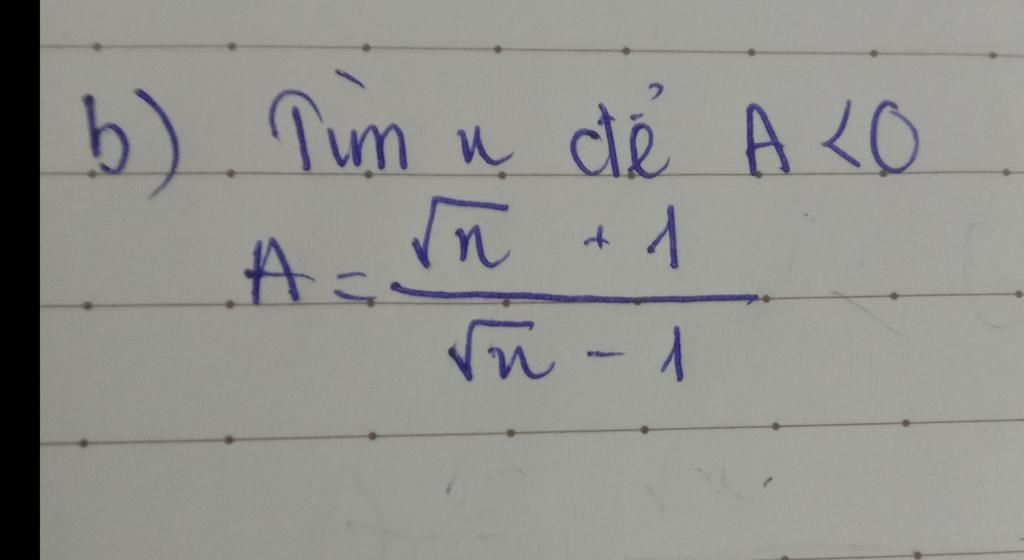 b) Tìm x để A < 0
A = \frac{\sqrt{x} + 1}{\sqrt{x} - 1}